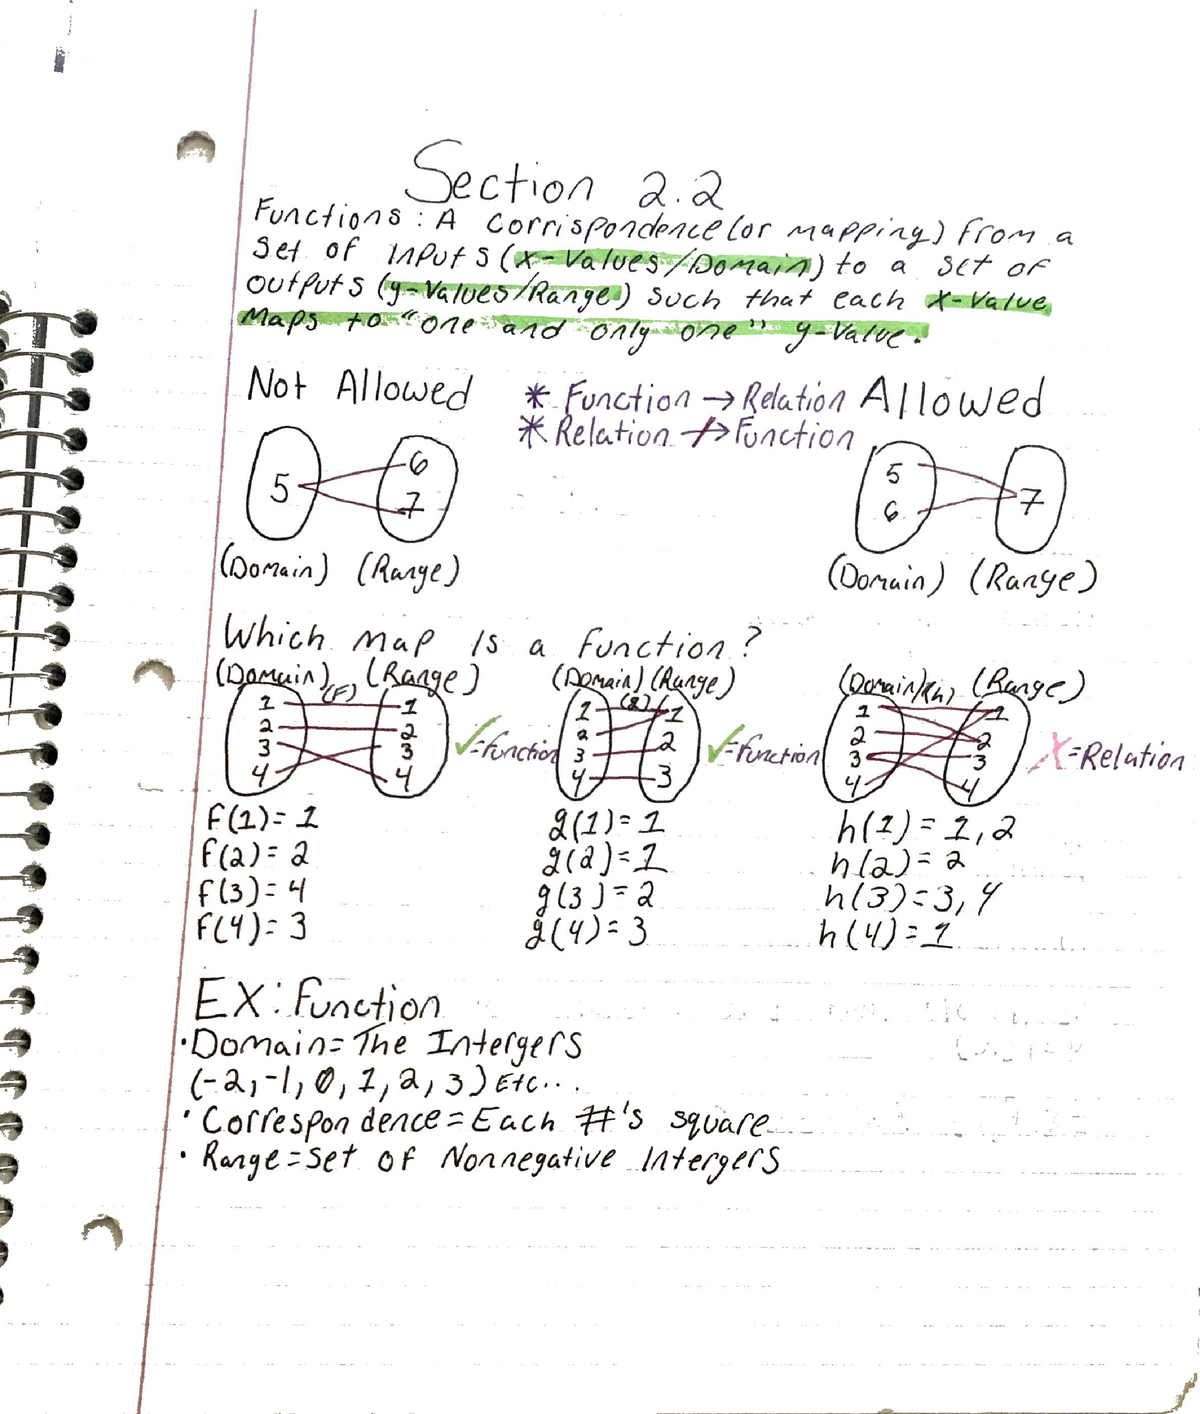 Section 2.2
Functions: A Corrispondence (or mapping) from a
Set of inputs (x-Values/Domain) to a set of
outputs (y-Values/Range) such that each x-Value
Maps to "one and only one" y-Value.
Not Allowed
* Function → Relation
* Relation ↛ Function
Allowed
5
6
7
(Domain) (Range)
5
6
7
(Domain) (Range)
Which map is a function?
(Domain) (F) (Range)
1 1
2 2
3 3
4 4
✓=function
(Domain) (g) (Range)
1 1
2 2
3 3
4
✓=function
(Domain) (h) (Range)
1 1
2 2
3 3
4 4
X=Relation
f(1)= 1
f(2)= 2
f(3)= 4
f(4)= 3
g(1)= 1
g(2)= 1
g(3)= 2
g(4)= 3
h(1)= 1,2
h(2)= 2
h(3)=3,4
h(4)=1
EX: Function
•Domain= The Intergers
(-2,-1,0,1,2,3) Etc...
• Correspondence= Each #'s square
• Range= set of Nonnegative Intergers